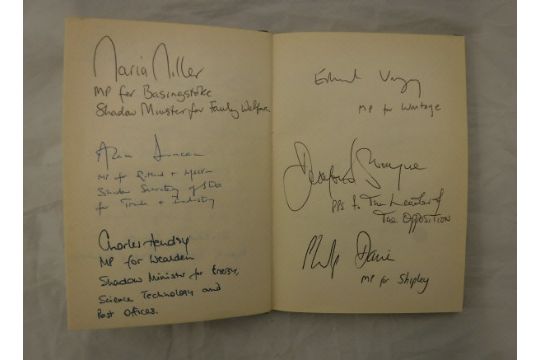 Maria Miller
MP for Basingstoke
Shadow Minister for Family Welfare
Alan Duncan
MP for Rutland + Melton
Shadow Secretary of State
for Trade + Industry
Charles Hendry
MP for Wealden
Shadow Minister for Energy,
Science Technology and
Post Offices.
Edward Vaizey
MP for Wantage
Desmond Swayne
PPS to The Leader of
The Opposition
Philip Davies
MP for Shipley